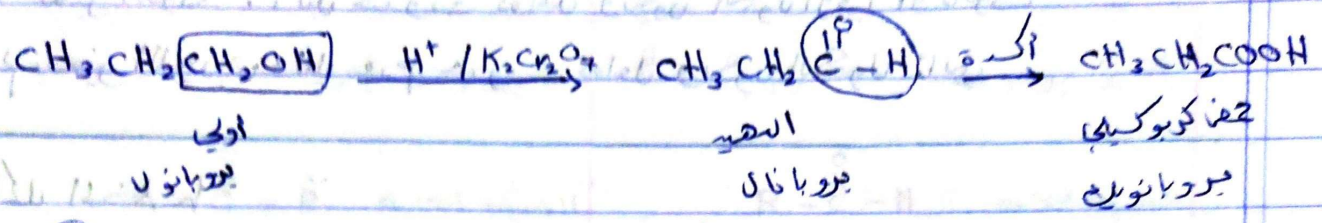 CH₃CH₂CH₂OH H⁺/K₂Cr₂O₇ → CH₃CH₂C(=O)-H أكسدة → CH₃CH₂COOH
أولي الدهيد حمض كربوكسيلي
بروبانول بروبانال بروبانويك